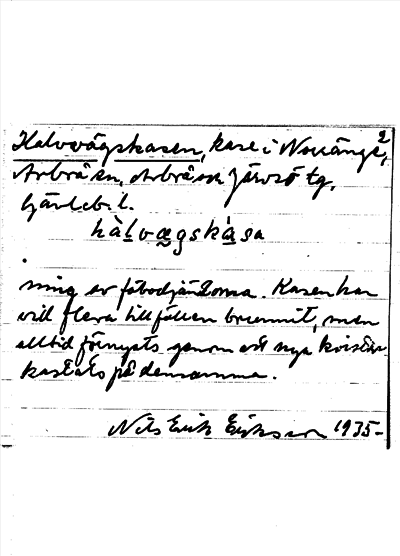 2
Halvvägskasen, kase i Norränge,
Arbrå sn, Arbrå och Järvsö tg,
Gävleb. l.
hàlvægskàsa
ning av fäbodjäntorna. Kasen har
vid flera tillfällen brunnit, men
alltid förnyats genom att nya kvistar
kastats på densamma.
Nils Erik Eriksson 1935-